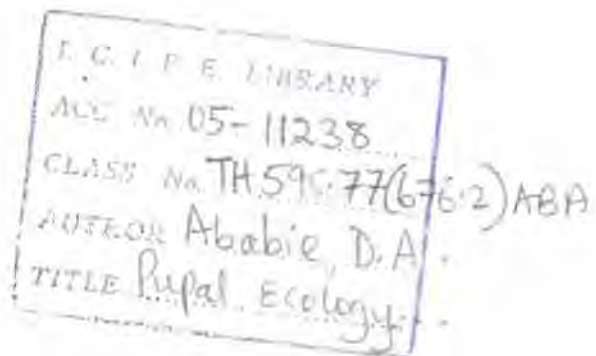 I. C. I. P. E. LIBRARY
ACC No. 05-11238
CLASS No. TH 595.77(676.2) ABA
AUTHOR Ababie, D.A.
TITLE Pupal Ecology